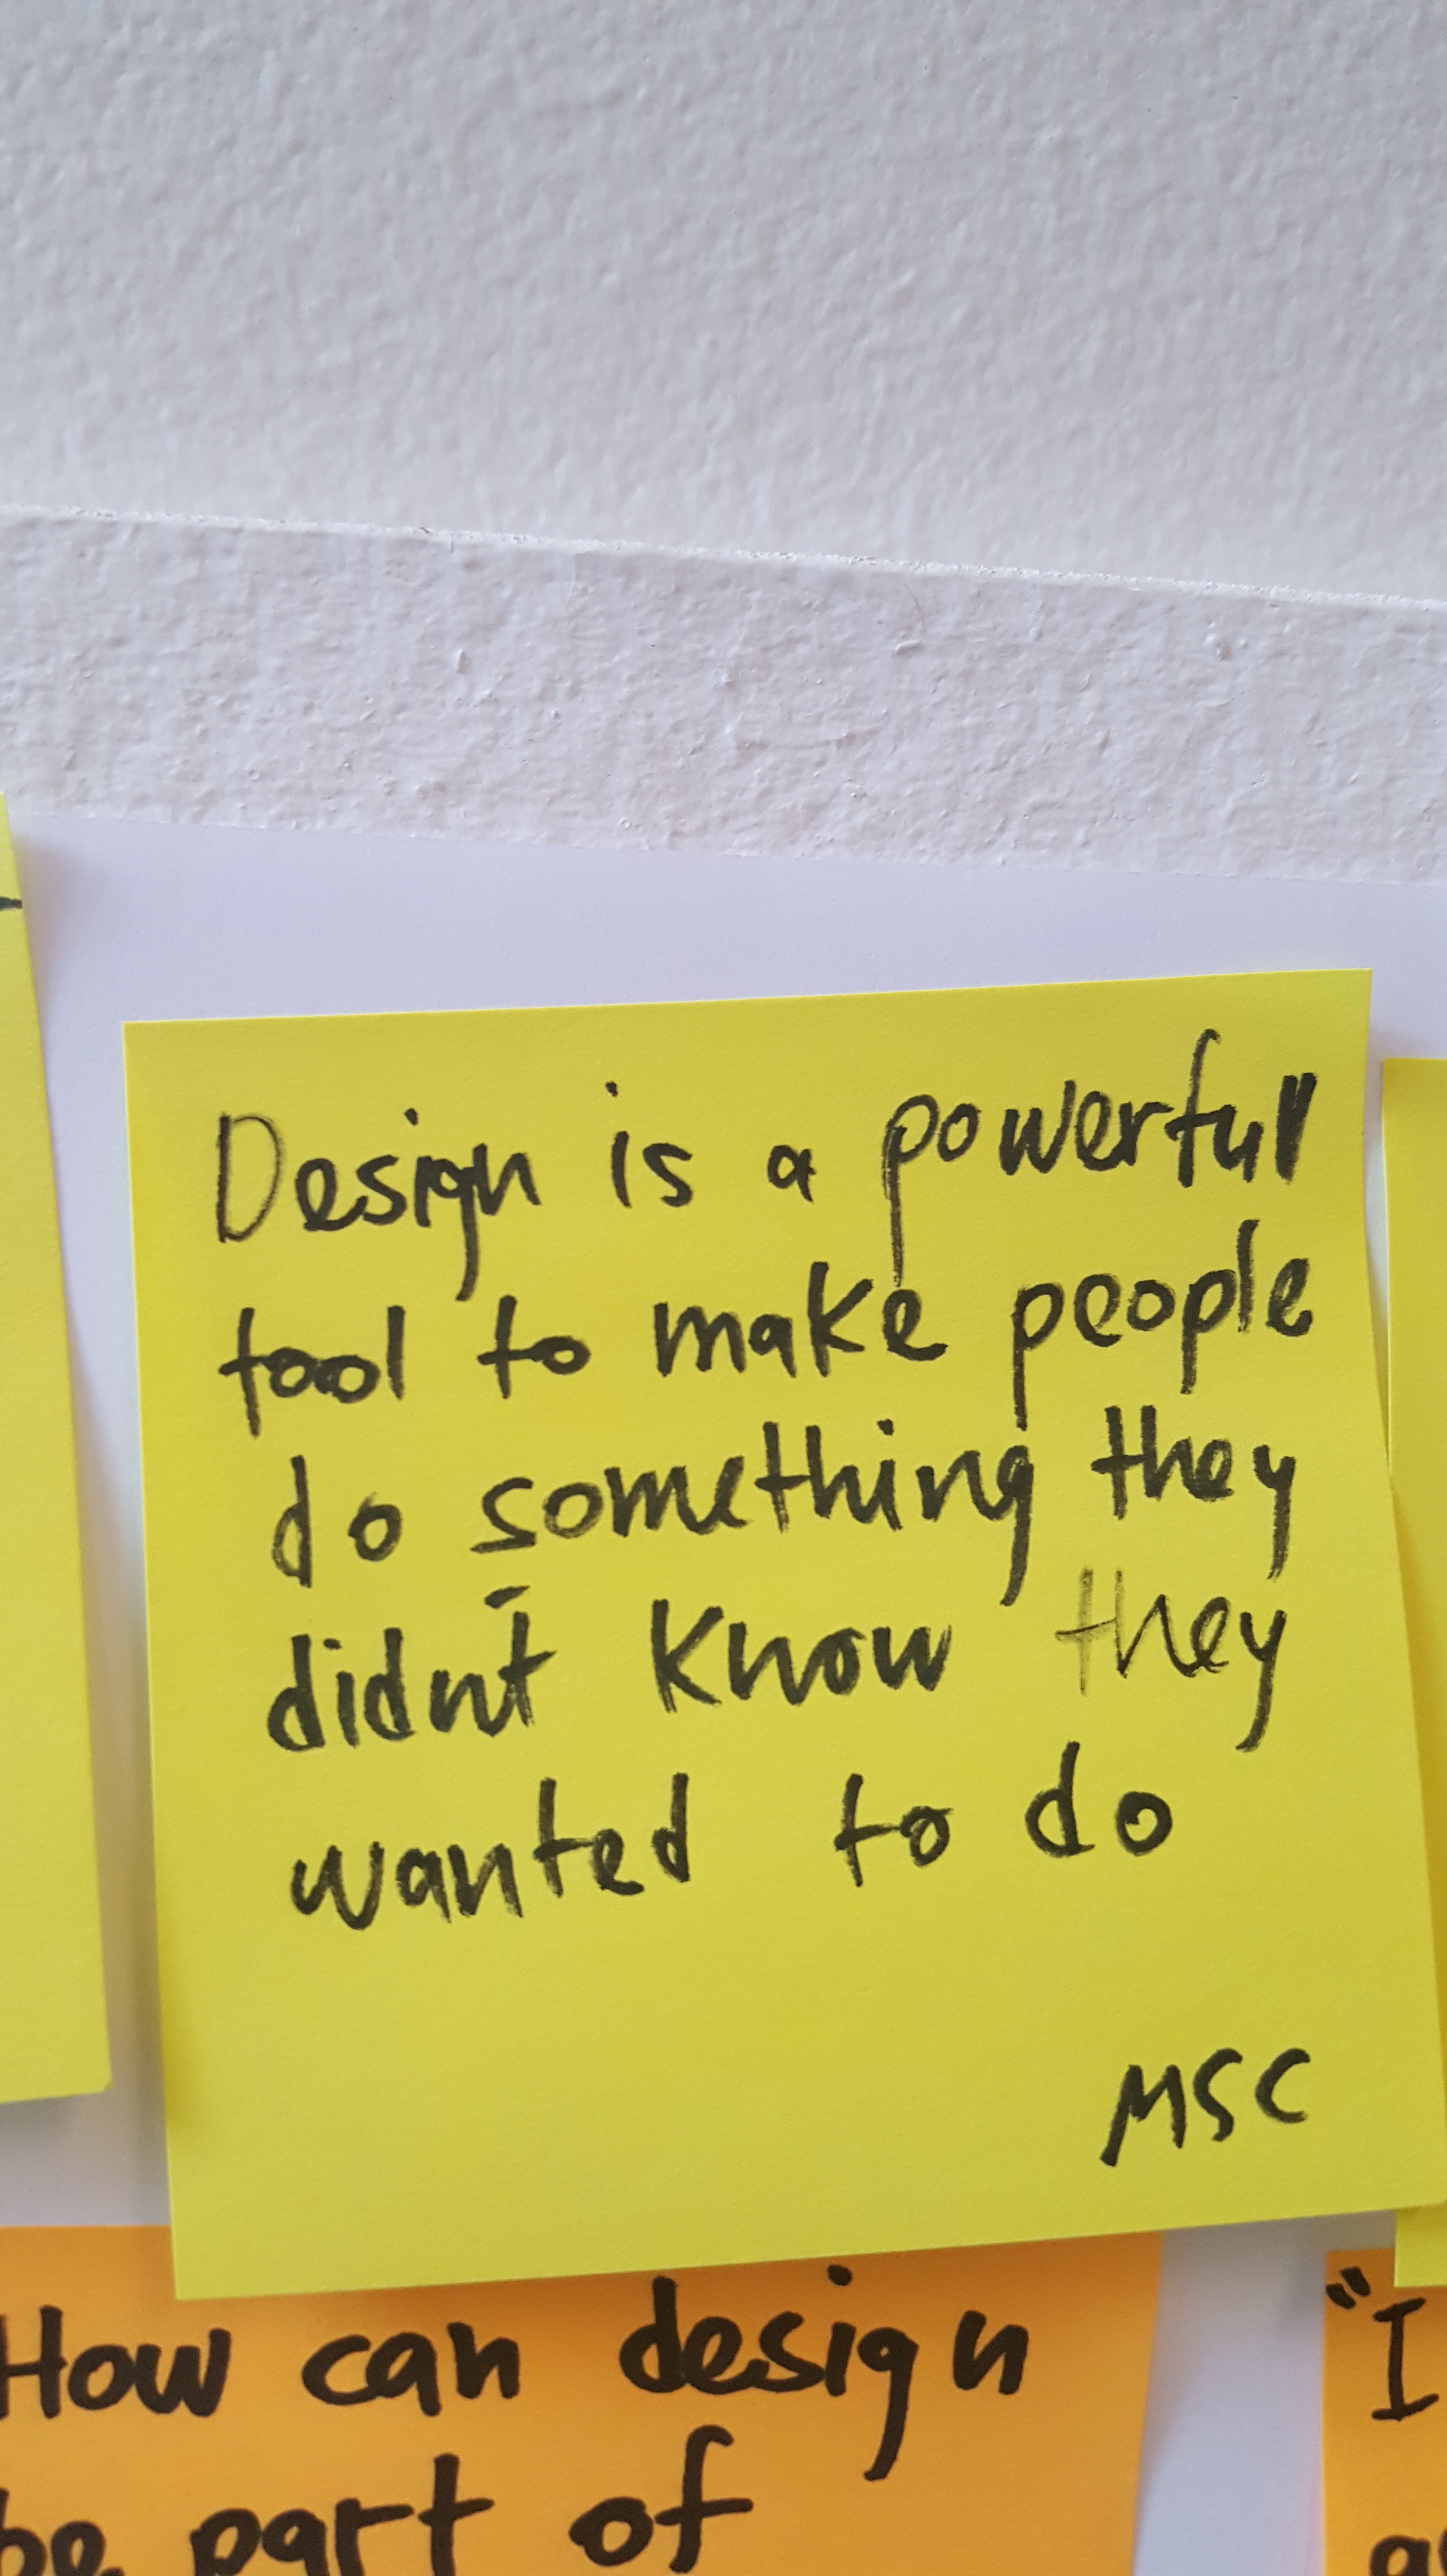 Design is a powerfull
tool to make people
do something they
didn't know they
wanted to do
MSC
How can design
be part of
"I